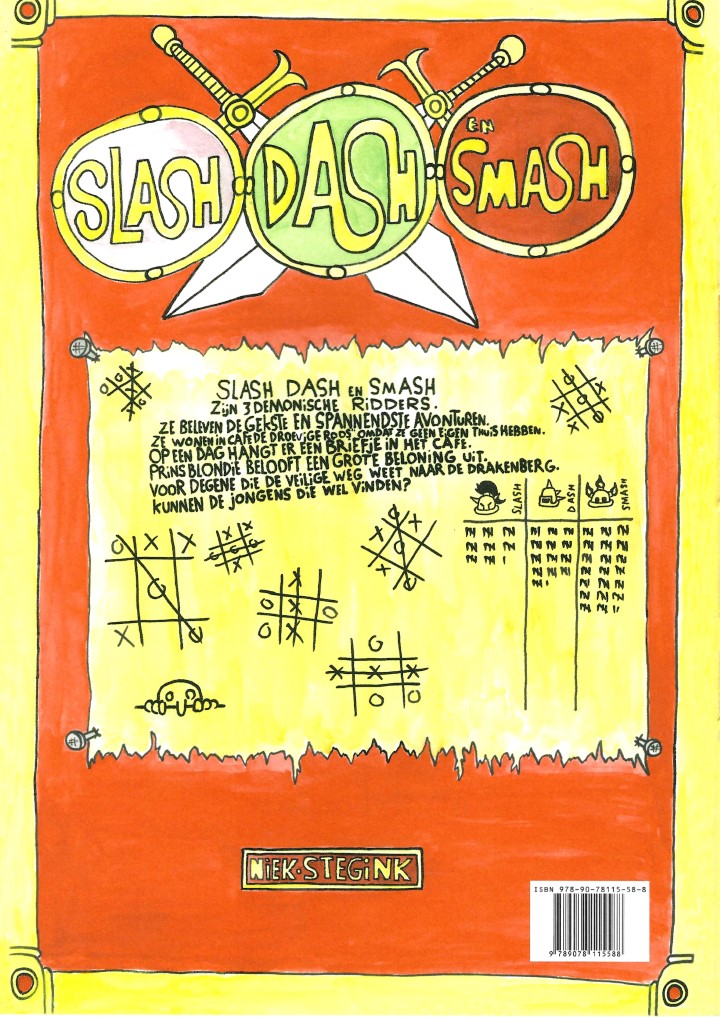 SLASH DASH EN SMASH
SLASH DASH EN SMASH
ZIJN 3 DEMONISCHE RIDDERS.
ZE BELEVEN DE GEKSTE EN SPANNENDSTE AVONTUREN.
ZE WONEN IN CAFE DE DROEVIGE ROOS" OMDAT ZE GEEN EIGEN THUIS HEBBEN.
OP EEN DAG HANGT ER EEN BRIEFJE IN HET CAFE.
PRINS BLONDIE BELOOFT EEN GROTE BELONING UIT.
VOOR DEGENE DIE DE VEILIGE WEG WEET NAAR DE DRAKENBERG.
KUNNEN DE JONGENS DIE WEL VINDEN?
SLASH DASH SMASH
NIEK·STEGINK
ISBN 978-90-78115-58-8
9 789078 115588